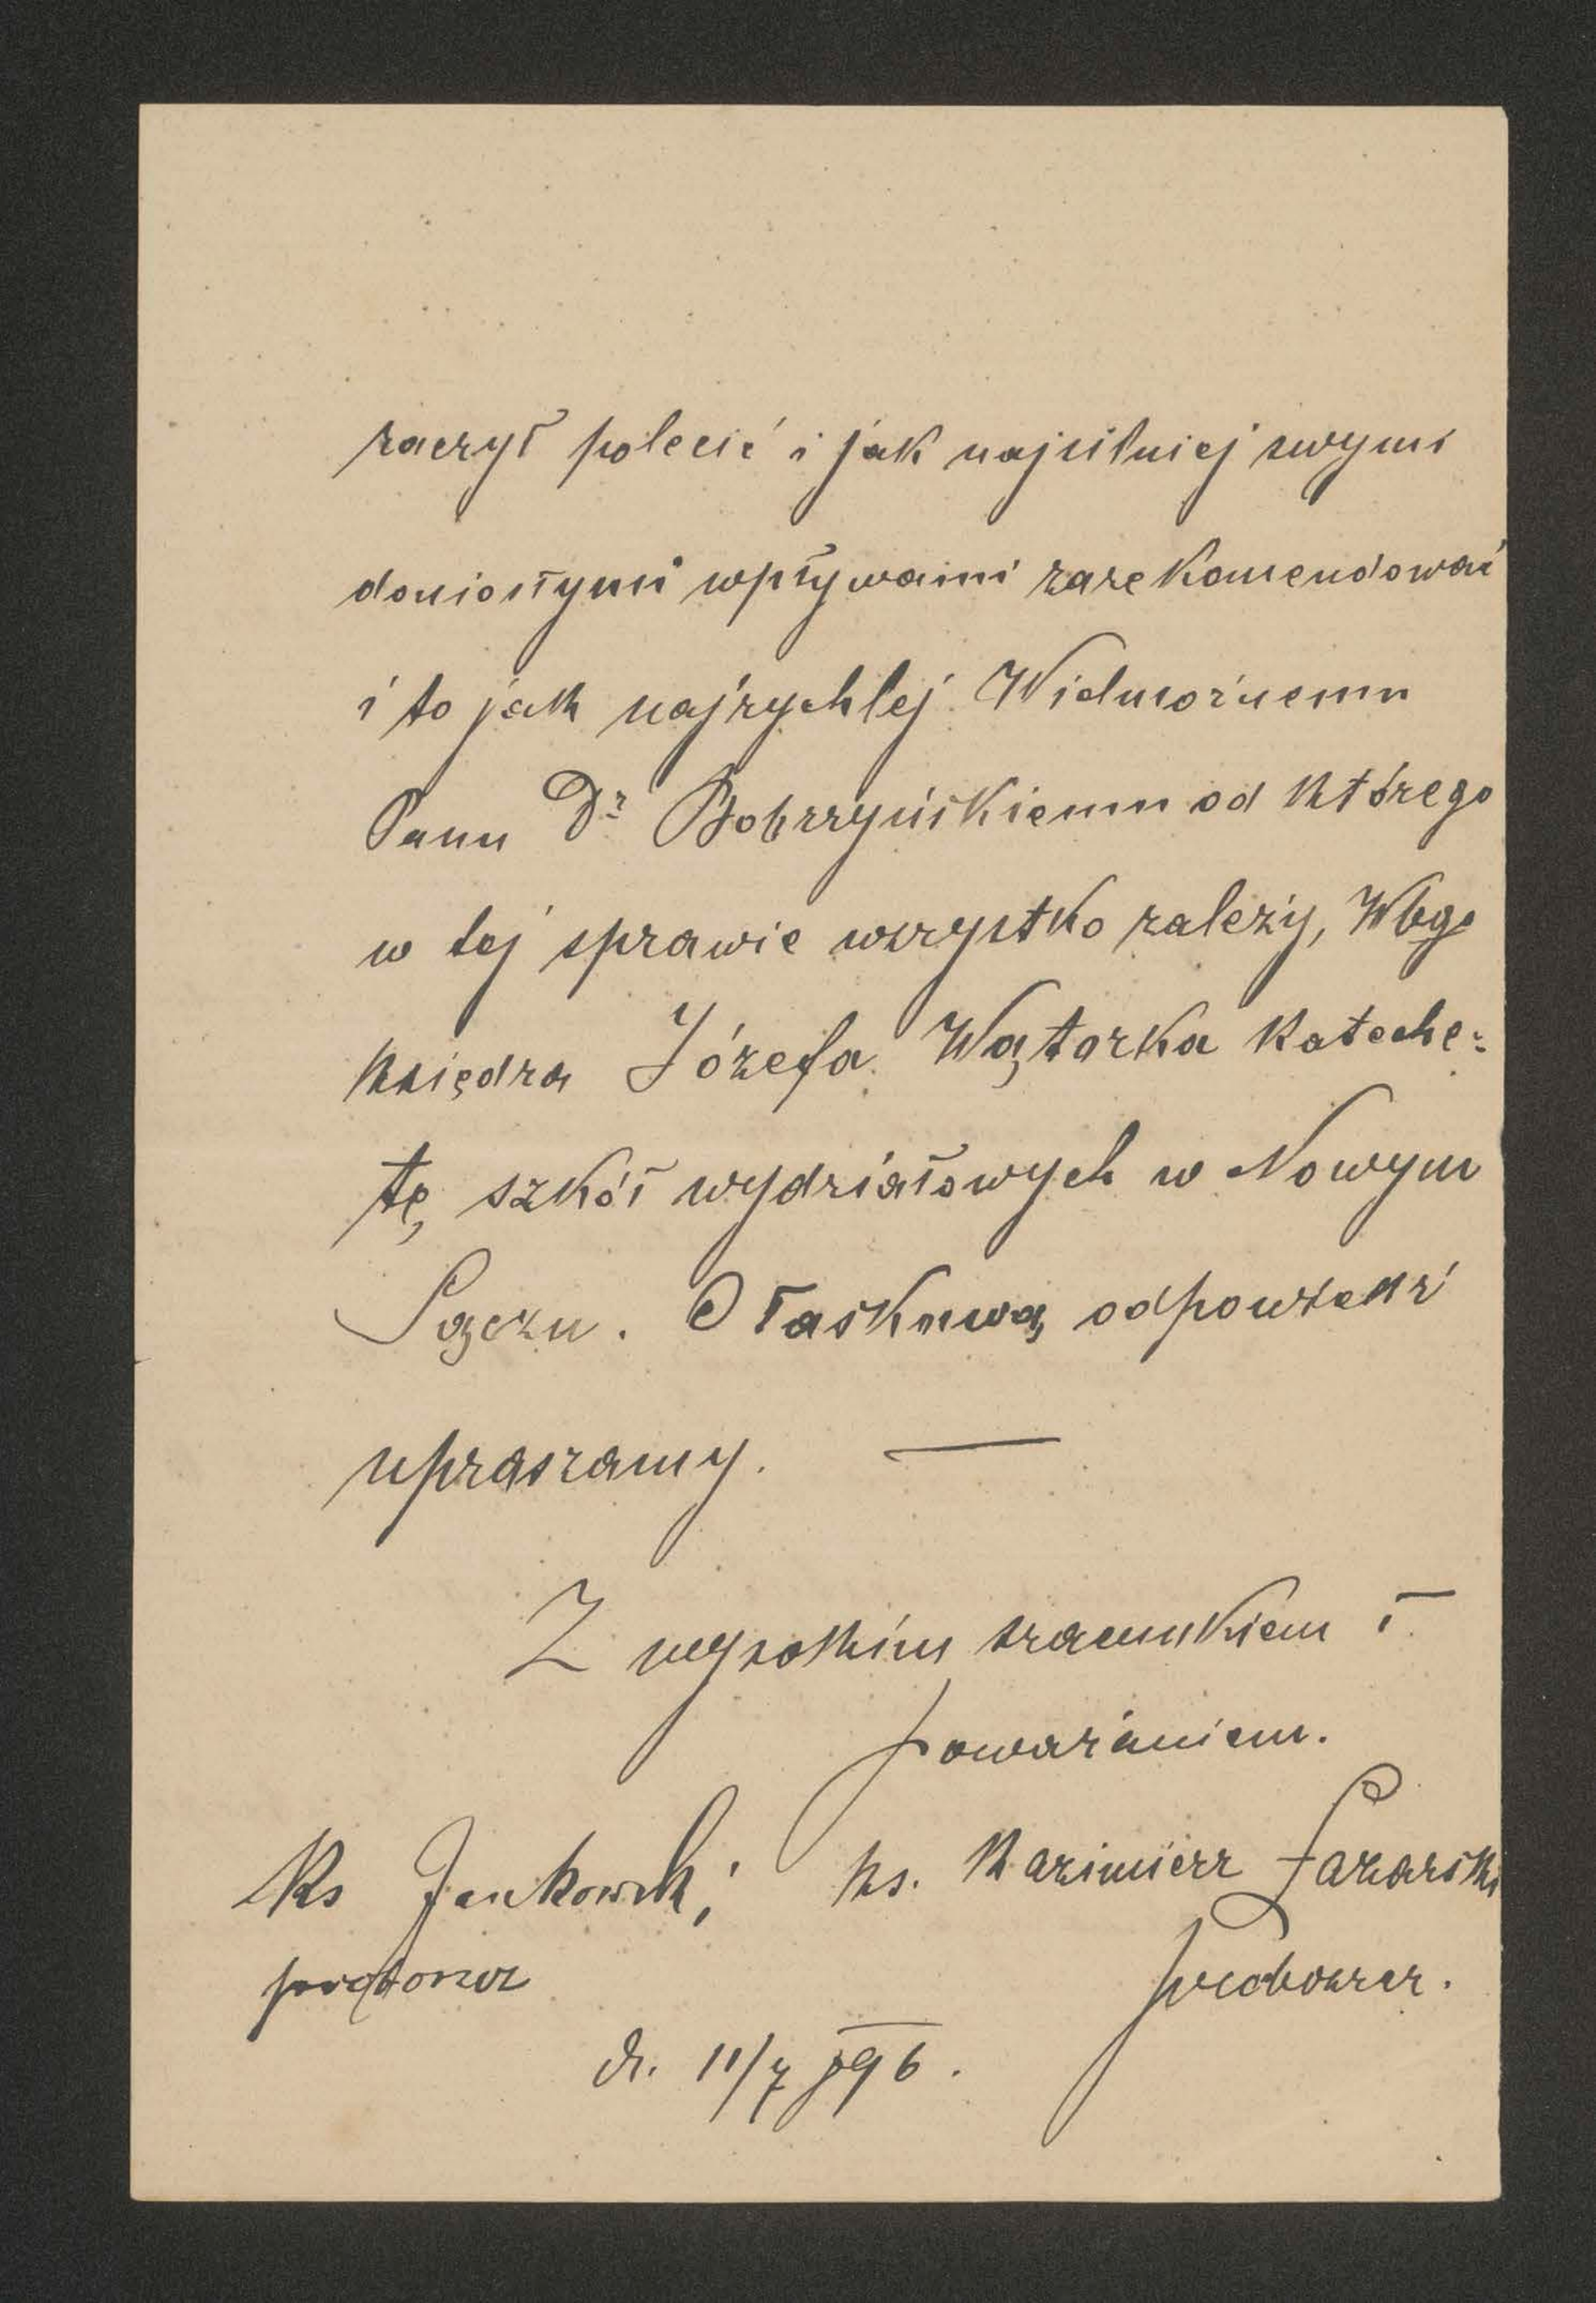 raczył polecić i jak najsilniej swymi
doniosłymi wpływami zarekomendować
i to jak najrychlej Wielmożnemu
Panu Dr Bobrzyńskiemu od którego
w tej sprawie wszystko zależy, Wbgo
księdza Józefa Wątorka kateche-
tę szkół wydziałowych w Nowym
Sączu. O łaskawą odpowiedź
upraszamy. —
Z wysokim szacunkiem i
poważaniem.
Ks Jankowski ks. Kazimierz Łazarski
proboszcz.
d. 11/7 896.